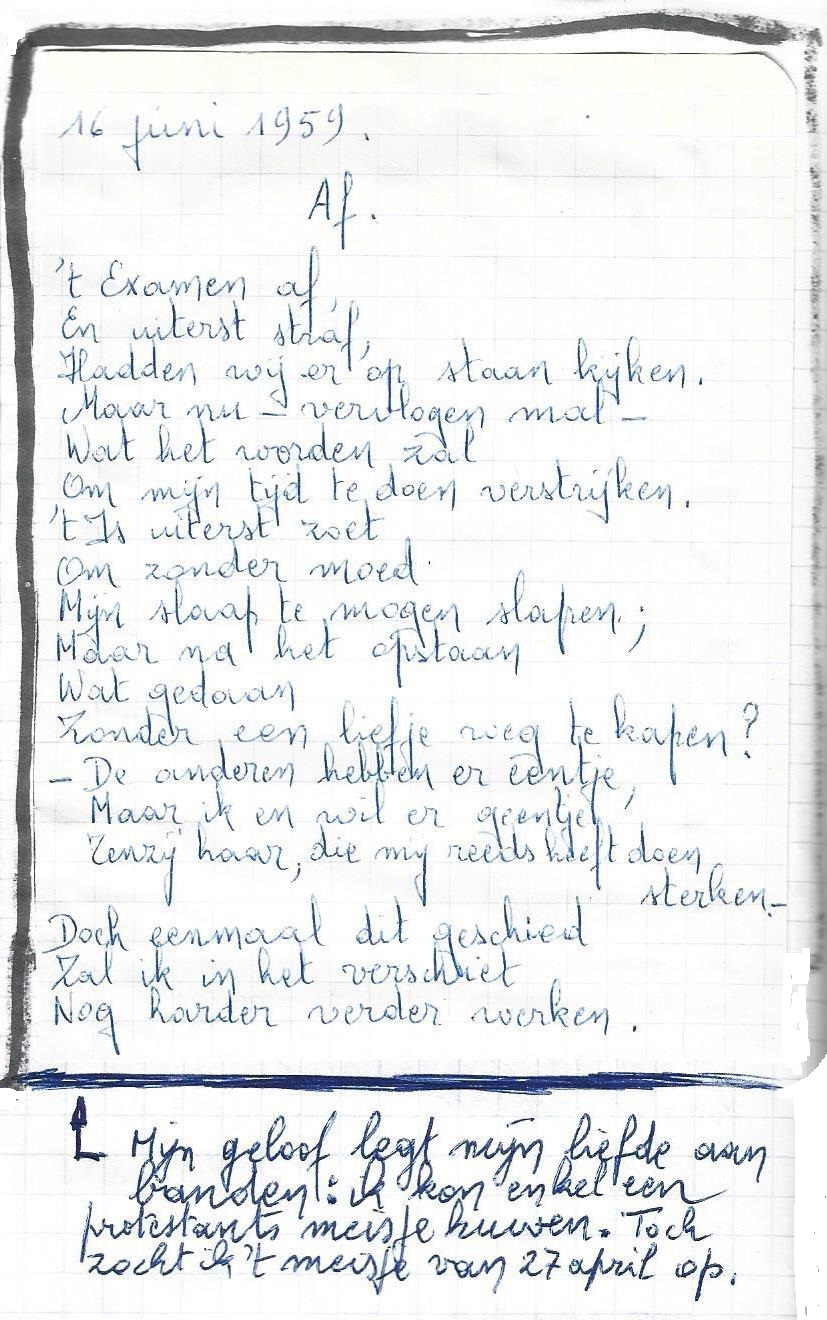 16 juni 1959.
Af.
't Examen af,
En uiterst straf,
Hadden wij er op staan kijken.
Maar nu – vervlogen mal –
Wat het worden zal
Om mijn tijd te doen verstrijken.
't Is uiterst zoet
Om zonder moed
Mijn slaap te mogen slapen;
Maar na het opstaan
Wat gedaan
Zonder een liefje weg te kapen?
– De anderen hebben er eentje,
Maar ik en wil er geentje,
Tenzij haar, die mij reeds heeft doen
sterken. –
Doch eenmaal dit geschied
Zal ik in het verschiet
Nog harder verder werken.
Mijn geloof legt mijn liefde aan
banden: ik kon enkel een
protestants meisje huwen. Toch
zocht ik 't meisje van 27 april op.